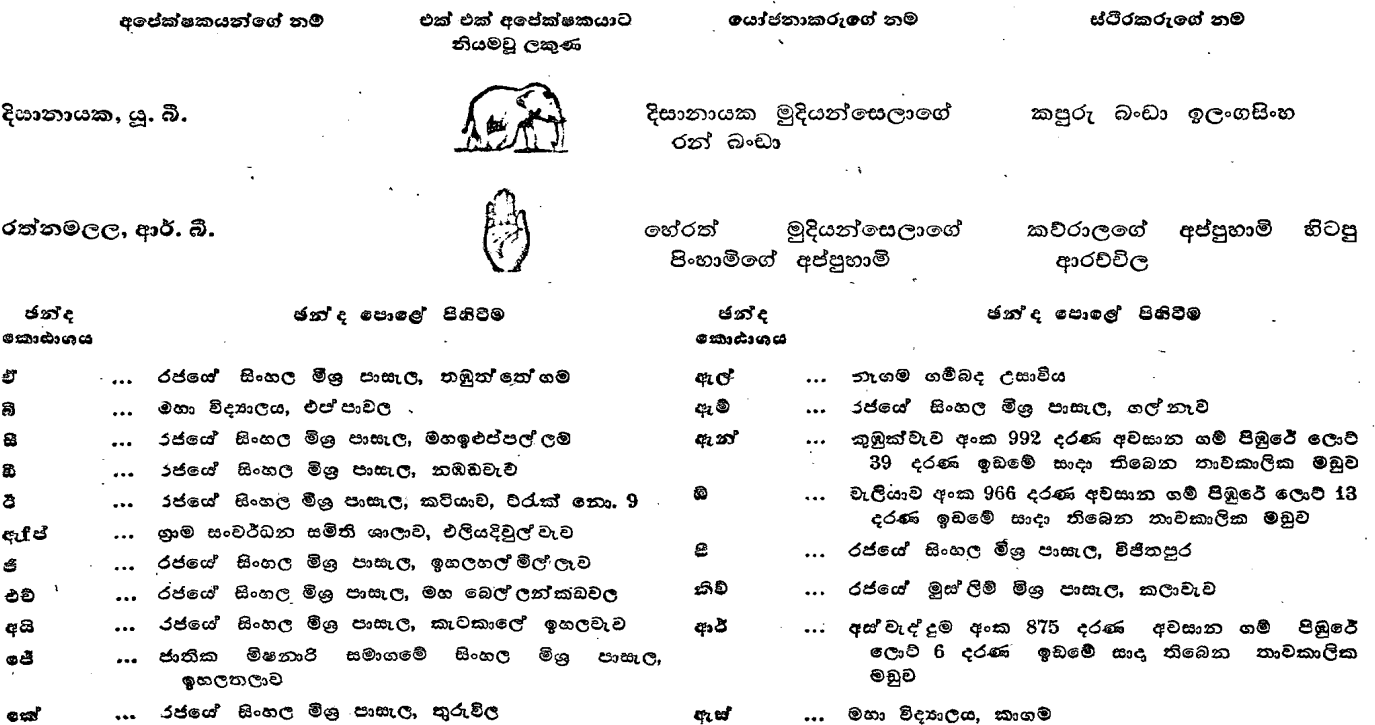 අපේක්ෂකයන්ගේ නම් එක් එක් අපේක්ෂකයාට යෝජනාකරුගේ නම ස්ථිරකරුගේ නම
නියමවූ ලකුණ
දිසානායක, යූ. බී. දිසානායක මුදියන්සෙලාගේ කපුරු බංඩා ඉලංගසිංහ
රන් බංඩා
රත්නමලල, ආර්. බී. හේරත් මුදියන්සෙලාගේ කව්රාලගේ අප්පුහාමි හිටපු
පිංහාමිගේ අප්පුහාමි ආරච්චිල
ඡන්ද ඡන්ද පොළේ පිහිටීම
කොඨාශය
ඒ ... රජයේ සිංහල මිශ්‍ර පාසැල, තඹුත්තේගම
බී ... මහා විද්‍යාලය, එප්පාවල
සී ... රජයේ සිංහල මිශ්‍ර පාසැල, මහඉළුප්පල්ලම
ඩී ... රජයේ සිංහල මිශ්‍ර පාසැල, නඹඩවැව
ඊ ... රජයේ සිංහල මිශ්‍ර පාසැල, කටියාව, ට්රැක් නො. 9
ඇෆ් ... ග්‍රාම සංවර්ධන සමිති ශාලාව, එලියදිවුල්වැව
ජී ... රජයේ සිංහල මිශ්‍ර පාසැල, ඉහලහල්මිල්ලෑව
එච් ... රජයේ සිංහල මිශ්‍ර පාසැල, මහ බෙල්ලන්කඩවල
අයි ... රජයේ සිංහල මිශ්‍ර පාසැල, කැටකාලේ ඉහලවැව
ජේ ... ජාතික මිෂනාරි සමාගමේ සිංහල මිශ්‍ර පාසැල,
ඉහලතලාව
කේ ... රජයේ සිංහල මිශ්‍ර පාසැල, තුරුවිල
ඡන්ද ඡන්ද පොළේ පිහිටීම
කොඨාශය
ඇල් ... නෑගම ගම්බද උසාවිය
ඇම් ... රජයේ සිංහල මිශ්‍ර පාසැල, ගල්නෑව
ඇන් ... කුඹුක්වැව අංක 992 දරණ අවසාන ගම් පිඹුරේ ලොට්
39 දරණ ඉඩමේ සාදා තිබෙන තාවකාලික මඩුව
ඔ ... චැලියාව අංක 966 දරණ අවසාන ගම් පිඹුරේ ලොට් 13
දරණ ඉඩමේ සාදා තිබෙන තාවකාලික මඩුව
පී ... රජයේ සිංහල මිශ්‍ර පාසැල, විජිතපුර
කිව් ... රජයේ මුස්ලිම් මිශ්‍ර පාසැල, කලාවැව
ආර් ... අස්වැද්දුම අංක 875 දරණ අවසාන ගම් පිඹුරේ
ලොට් 6 දරණ ඉඩමේ සාදා තිබෙන තාවකාලික
මඩුව
ඇස් ... මහා විද්‍යාලය, කාගම